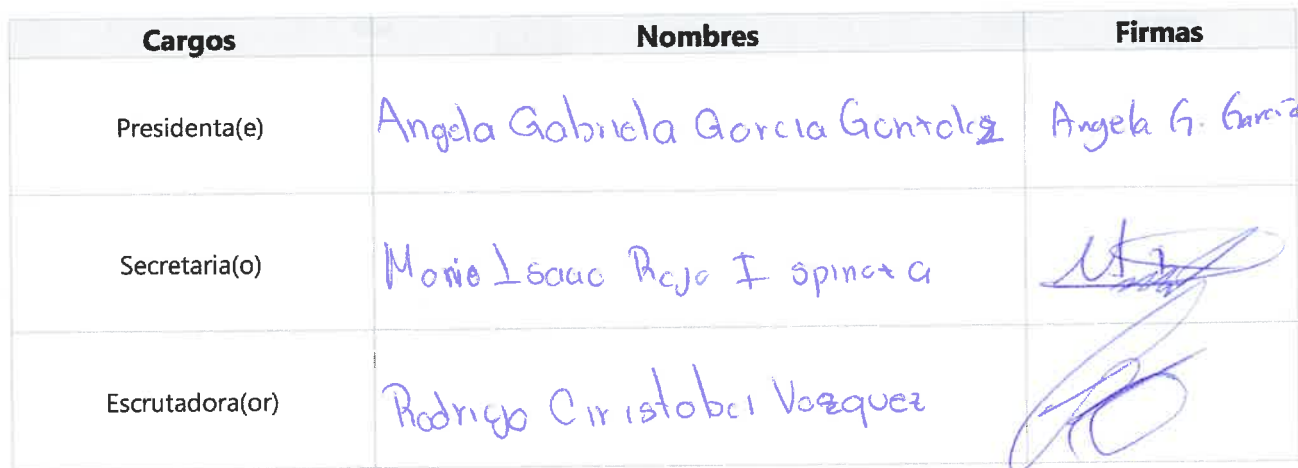 Cargos Nombres Firmas
Presidenta(e) Angela Gabriela Garcia Gonzalez Angela G. García
Secretaria(o) Isaac Rojo
Escrutadora(or) Rodrigo Ciristobal Vazquez